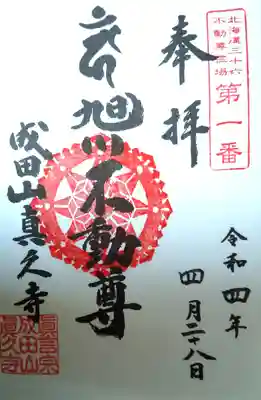 北海道三十六
不動尊霊場
第一番
奉拝
令和四年
四月二十八日
旭川不動尊
成田山真久寺
眞言宗
成田山
眞久寺